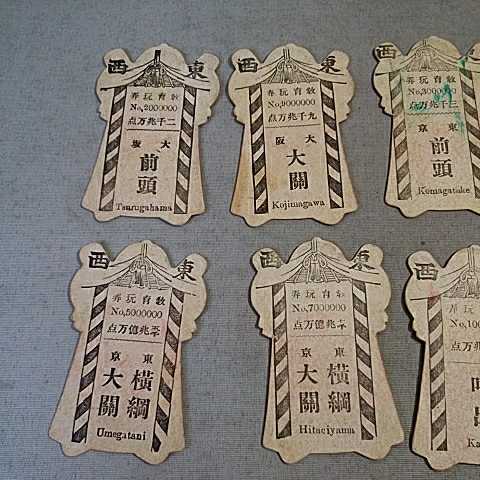 西 東
弄玩育敎
No,2000000
点万兆千二
阪大
前頭
Tsurugahama
西 東
弄玩育敎
No,9000000
点万兆千九
阪大
大關
Kojimagawa
西 東
弄玩育敎
No,3000000
点万兆千三
京東
前頭
Komagatake
西 東
弄玩育敎
No,5000000
点万億兆
京東
横綱
大關
Umegatani
西 東
弄玩育敎
No,7000000
点万億兆
京東
横綱
大關
Hitaciyama
西
弄玩育
No,10
点万兆
Ka